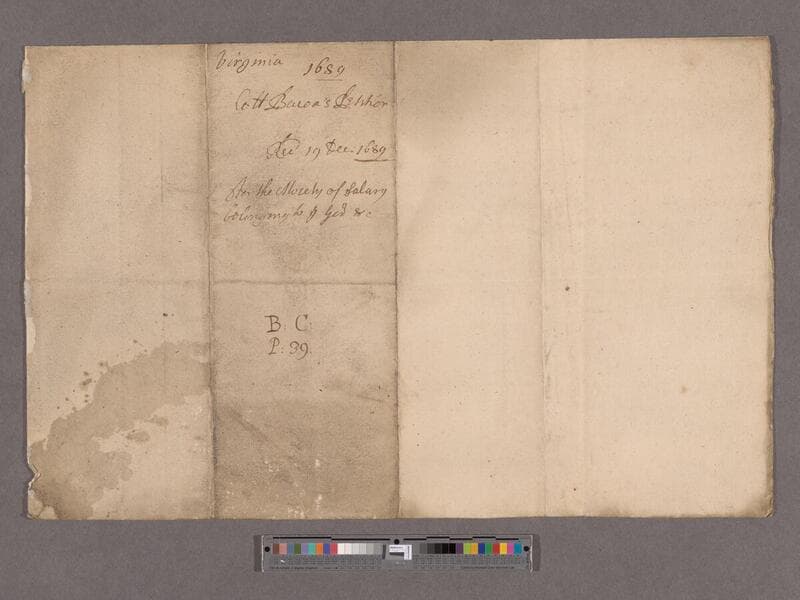 Virginia 1689
Coll Bacon's Petition
Rec 19 Dec. 1689
For the Moiety of Salary
belonging to ye Gov &c
B. C.
P: 39.